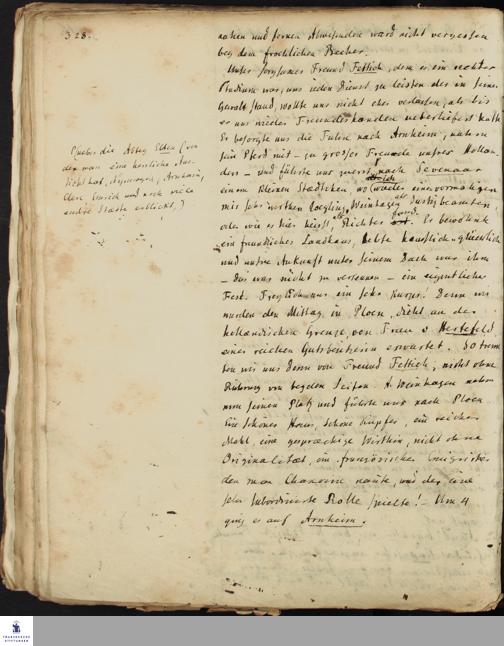 328.
nahen und fernen Abwesenden ward nicht vergessen
bey dem froehlichen Becher.
Unser sorgsamer Freund Fettich, dem es ein rechter
war, uns jeden Dienst zu leisten der in seiner
Gewalt stand, wollte uns nicht eher verlassen, als bis
er uns wieder Freundeshanden ueberliefert hatte
Er besorgte uns die Fuhre nach Arnheim, nahm
sein Pferd mit - zu grosser Freude unsrer Hollan
der - und führte uns zuerst nach Sevenaar
einem kleinen Stadtchen, wo wieder einer vormaligen
mir sehr werthen Zoegling, Weinhagen als Justizbeamten
oder wie es hier heisst, als Richter
ein freundliches Landhaus, lebte haeuslich u. glücklich
und unsre Ankunft unter seinem Dach war ihm
- das war nicht zu verkennen - ein eigentliches
Fest. Freylich nur ein sehr kurzes! Denn wir
wurden den Mittag in Ploen, dicht an der
hollaendischen Grenze, von Frau v Hertefeld
einer reichen Gutsbesitzerin erwartet. So trenn
ten wir uns denn von Freund Fettich, nicht ohne
Rührung von beyden Seiten. H. Weinhagen nahm
nun seinen Platz und führte uns nach Ploen
Ein schönes Haus, schöne Kupfer, ein reiches
Mahl, eine gespraechige Wirthin, nicht ohne
Originalitaet, ein französischer Emigrirter
den man Chanoine nannte, und der eine
sehr subordinirte Rolle spielte! - Um 4
ging es auf Arnheim.
(ueber die Abtey Elten (von
der man eine herrliche Aus
sicht hat, Nymwegen, Arnheim,
Cleve, Emrich und noch viele
andre Staedte erblickt,)
FRANCKESCHE
STIFTUNGEN